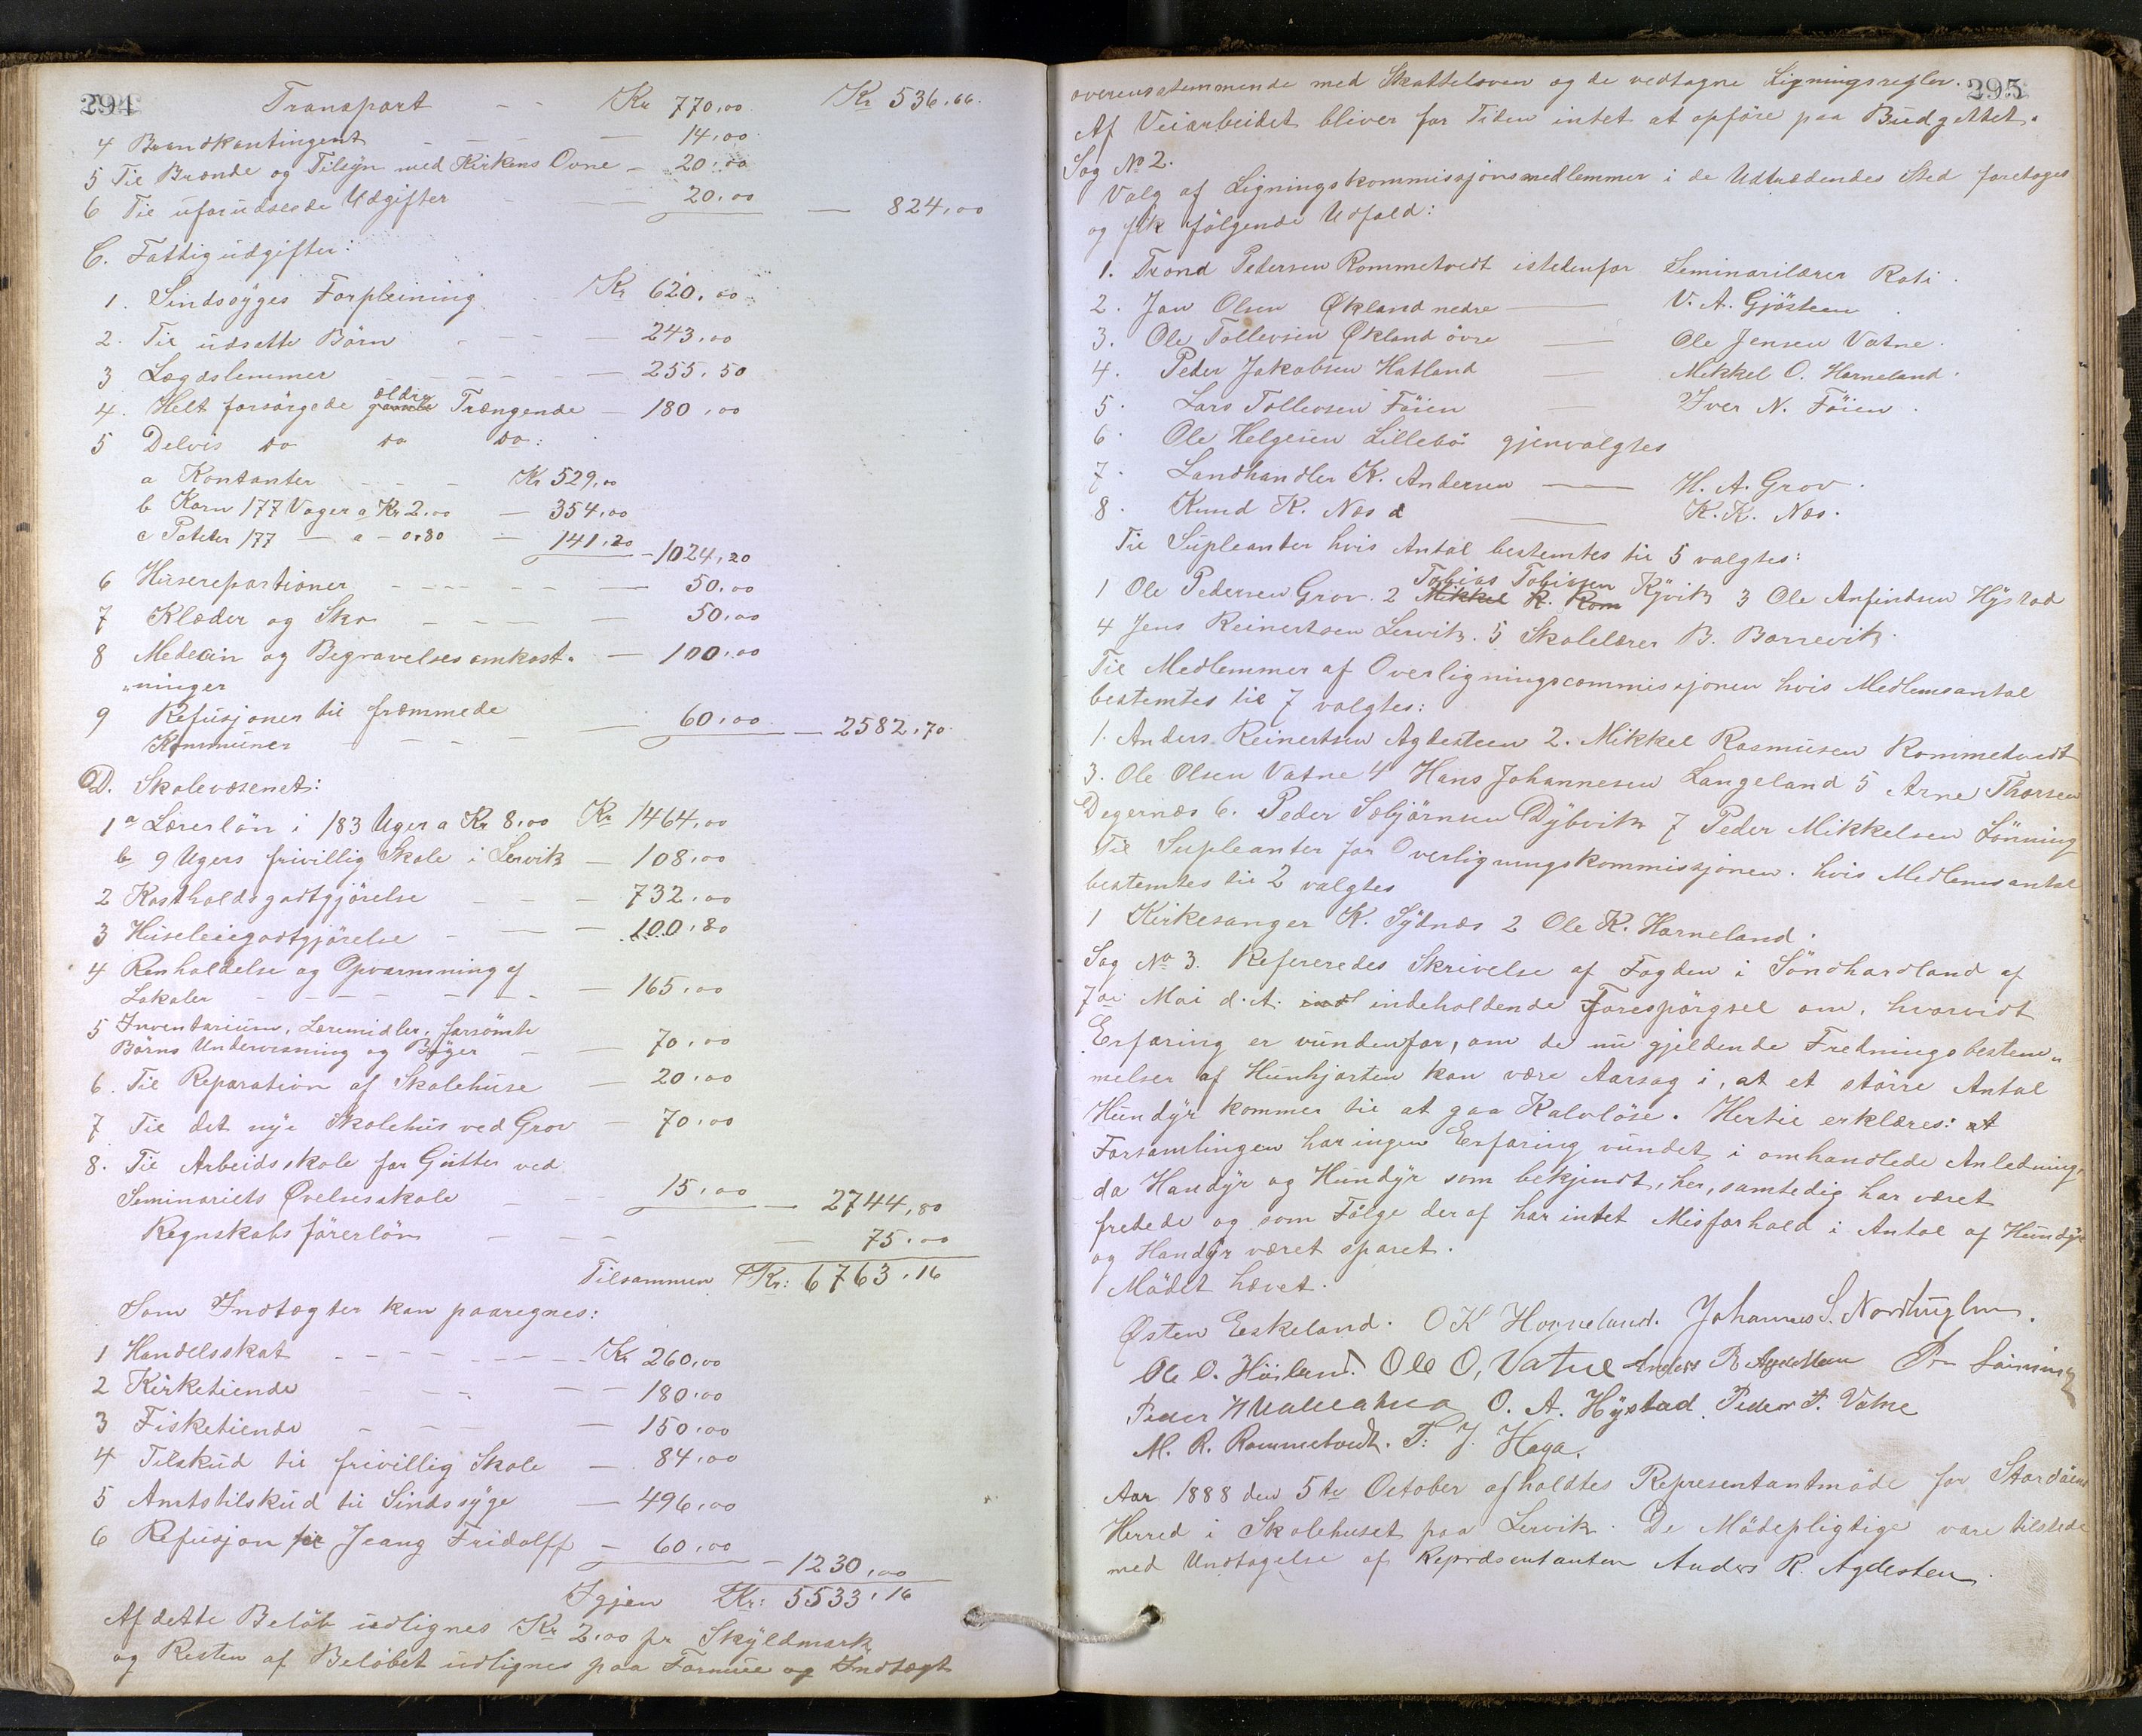 294
Transport - - Kr 770,00 Kr 536,66.
4 Brandkontingent - - - 14,00
5 Til Brænde og Tilsyn med Kirkens Ovne - 20,00
6 Til uforudseede Udgifter - - 20,00 - 824,00
C. Fattigudgifter:
1. Sindssyges Forpleining - Kr 620,00
2. Til udsatte Börn - - - 243,00
3 Lægdslemmer - - - - 255,50
4. Helt forsörgede gamle ældre Trængende - 180,00
5 Delvis do do do:
a Kontanter - - - Kr 529,00
b Korn 177 Voger a Kr 2.00 - 354,00
c Poteter 177 - a - 0.80 - 141,20 - 1024,20
6 Husereparationer - - - - - 50,00
7 Klæder og Sko - - - - 50,00
8 Medecin og Begravelsesomkost- - 100,00
"ninger
9 Refusjoner til fræmmede
Kommuner - - - - 60,00 - 2582,70
D. Skolevæsenet:
1 a Lærerlön i 183 Uger a Kr 8,00 Kr 1464,00
b 9 Ugers frivillig Skole i Lervik - 108,00
2 Kostholdsgodtgjörelse - - - 732,00
3 Huseleiegodtgjörelse - - - 100,80
4 Renholdelse og Opvarmning af
Lokaler - - - - - - 165,00
5 Inventarium, Læremidler, forsömte
Börns Undervisning og Böger - - 70,00
6. Til Reparation af Skolehuse - 20,00
7 Til det nye Skolehus ved Grov - 70,00
8. Til Arbeidsskole for Gutter ved
Seminariets Övelsesskole - - 15,00 - 2744,80
Regnskabsförerlön - - - - 75,00
Tilsammen Kr: 6763,16
Som Indtægter kan paaregnes:
1 Handelsskat - - - - - - - Kr 260,00
2 Kirketiende - - - - 180,00
3 Fisketiende - - - - 150,00
4 Tilskud til frivillig Skole - 84,00
5 Amtstilskud til Sindssyge - 496,00
6 Refusjon for Jeang Fridolff - 60,00 - 1230,00
Igjen Kr: 5533,16
Af dette Belöb udlignes Kr 2,00 pr Skyldmark
og Resten af Belöbet udlignes paa Formue og Indtægt
295
overensstemmende med Skatteloven og de vedtagne Ligningsregler.
Af Veiarbeidet bliver for Tiden intet at opföre paa Budgettet.
Sag No 2.
Valg af Ligningskommissjonsmedlemmer i de Udtrædendes Sted foretoges
og fik fölgende Udfald:
1. Trond Pedersen Rommetvedt istedenfor Seminarilærer Roti.
2. Jon Olsen Økland nedre - V. A. Gjösteen.
3. Ole Tollevsen Økland övre - Ole Jensen Vatne.
4. Peder Jakobsen Hatland - Mikkel O. Horneland.
5. Lars Tollevsen Föien - Iver N. Föien.
6. Ole Helgesen Lillebö gjenvalgtes
7. Landhandler K. Andersen - H. A. Grov.
8. Knud K. Næs - K. K. Næs.
Til Supleanter hvis Antal bestemtes til 5 valgtes:
1 Ole Pedersen Grov. 2 Mikkel R. Rom Tobias Tobiesen Kyvik 3 Ole Anfindsen Hystad
4 Jens Reinertsen Lervik. 5 Skolelærer B. Borrevik.
Til Medlemmer af Overligningscommissjonen hvis Medlemsantal
bestemtes til 7 valgtes:
1. Anders Reinertsen Agdesteen 2. Mikkel Rasmusen Rommetvedt
3. Ole Olsen Vatne 4 Hans Johannesen Langeland 5 Arne Thorsen
Degernæs 6. Peder Sæbjörnsen Dybvik 7 Peder Mikkelsen Lönning
Til Supleanter for Overligningskommissjonen. hvis Medlemsantal
bestemtes til 2 valgtes
1 Kirkesanger K. Sydnæs 2 Ole K. Horneland.
Sag No 3. Refereredes Skrivelse af Fogden i Söndhordland af
7de Mai d. A. ind indeholdende Forespörgsel om, hvorvidt
Erfaring er vundenfor, om de nu gjeldende Fredningsbestem"
melser af Hunhjorten kan være Aarsag i, at et större Antal
Hundyr kommer til at gaa Kalvlöse. Hertil erklæres: at
Forsamlingen har ingen Erfaring vundet, i omhandlede Anledning,
da Handyr og Hundyr som bekjendt, her, samtidig har været
fredede og som Fölge deraf har intet Misforhold i Antal af Hundyr
og Handyr været sporet.
Mödet hævet.
Østen Eskeland. O K Horneland. Johannes S. Nordhuglen.
Ole O. Höiland. Ole O, Vatne Anders R Agdesteen P m Lönning
Peder O. A. Hystad. Peder T. Vatne
M. R. Rommetvedt. T: J. Haga.
Aar 1888 den 5te October afholdtes Representantmöde for Stordöens
Herred i Skolehuset paa Lervik. De Mödepligtige vare tilstede
med Undtagelse af Repræsentanten Anders R. Agdesteen.